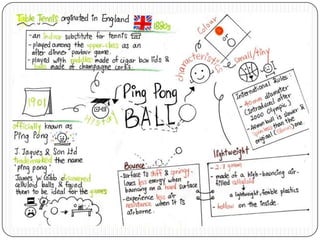 Table Tennis originated in England 1880s
- an indoor substitute for tennis
- played among the upper-class as an
after dinner parlour game.
- played with paddles made of cigar box lids &
balls made of champagne corks.
1901
officially known as
Ping Pong
J. Jaques & Son Ltd
trademarked the name
'ping pong'
James W Gibb discovered
celluloid balls, & found
them to be ideal for the game
HISTORY
Ping Pong
BALL
characteristics
Colour
or
Size
small/tiny
International Rules:
- 40mm diameter
(Introduced after
2000 Olympic)
- 40mm ball is slower &
spins less than the
original (38mm) one.
Bounce
- surface is stiff & springy,
loses less energy when
bouncing on a hard surface
- experience less air
resistance when it is
airborne.
lightweight
- 2.7 grams
- made of a high-bouncing air-
filled celluloid
a lightweight, flexible plastics
- hollow on the inside.